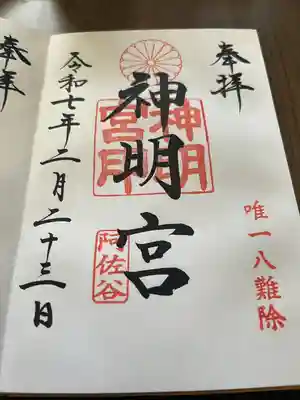 奉拝
唯一八難除
神明宮
神明
宮
阿佐谷
令和七年二月二十三日
奉拝